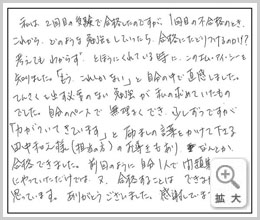 私は、2回目の受験で合格したのですが、1回目の不合格のとき、
これから、どのような勉強をしていったら、合格にたどりつけるのか？
考えてもわからず、とほうにくれている時に、この
知りました。「もう、これしかない」と自分の中で直感しました。
てんさくと出す必要のない勉強が私の求めていたもの
でした。自分のペースで無理なくでき、少しずつですが
「力がついてきています」と励ましの言葉をかけて下さる
田中 様（担当の方）のお身もあり なんとか、
合格できました。前回のように自分1人で問題集
にやっていただけでは、 合格することは できま
思っています。ありがとうございました。感謝してい
拡大